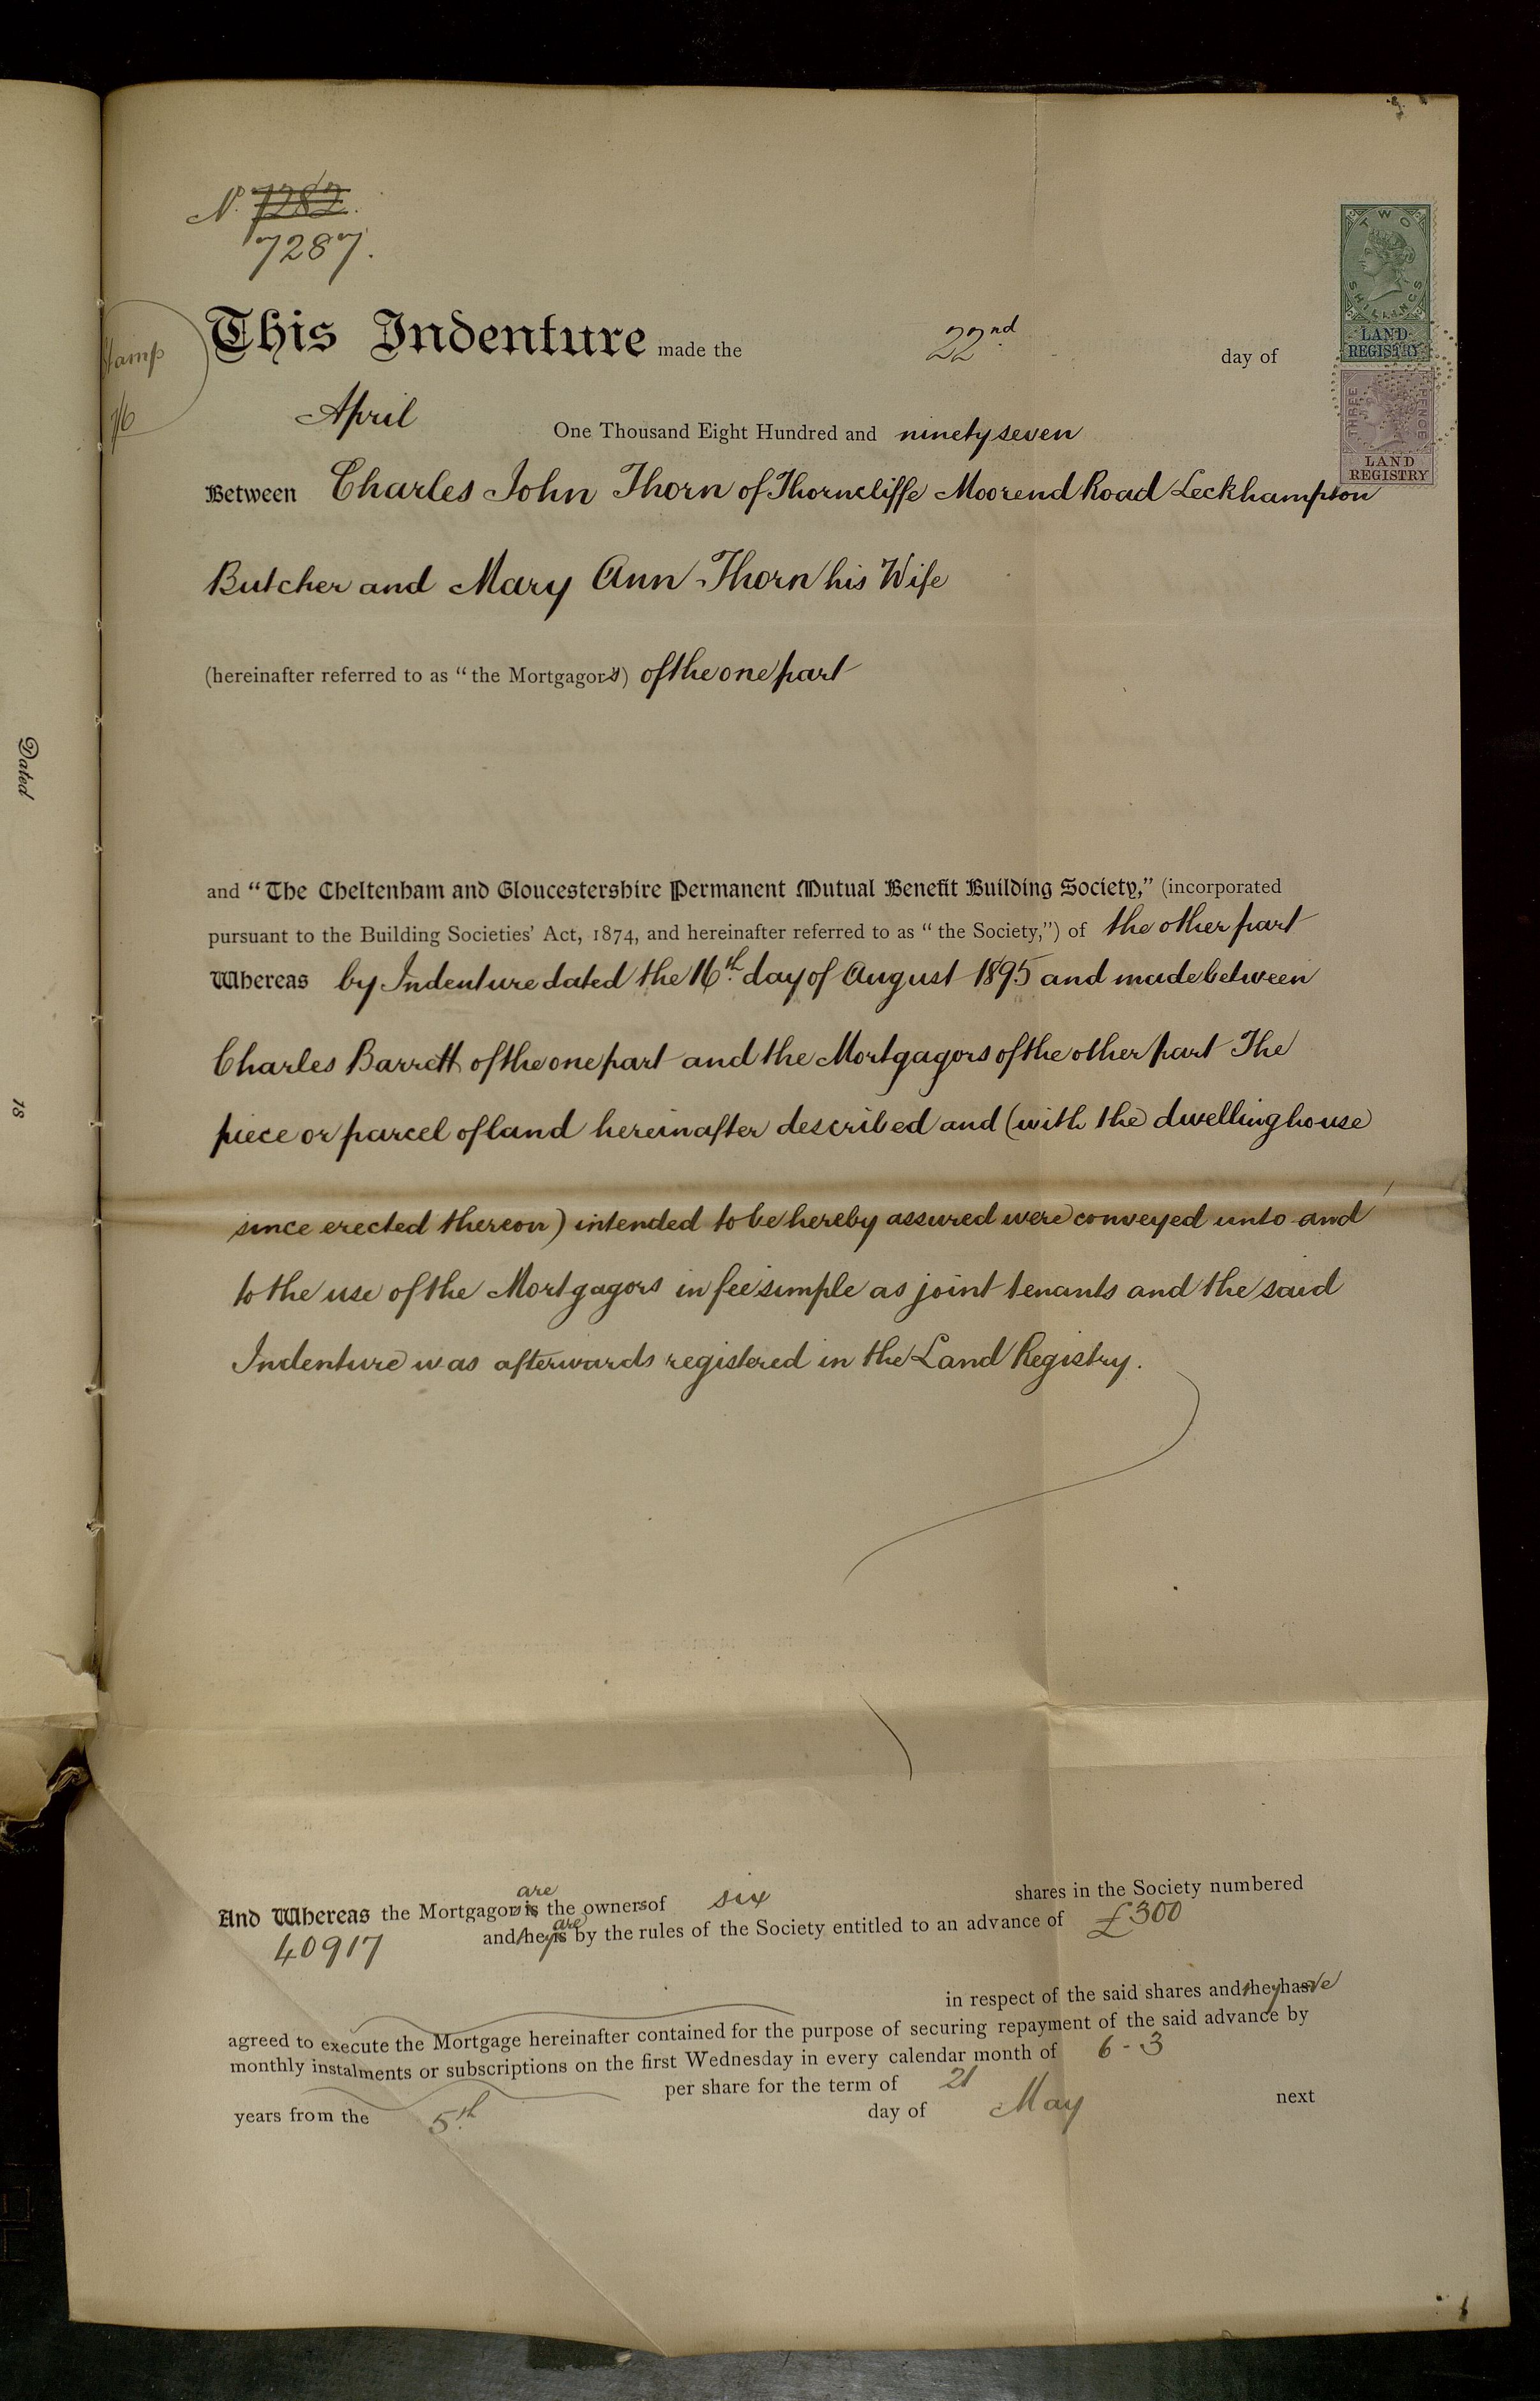 N. 7282.
7287.
TWO SHILLINGS
LAND REGISTRY
THREE PENCE
LAND REGISTRY
Stamp
7/6
This Indenture made the 22nd day of
April One Thousand Eight Hundred and ninety seven
Between Charles John Thorn of Thorncliffe Moorend Road Leckhampton
Butcher and Mary Ann Thorn his Wife
(hereinafter referred to as "the Mortgagors) of the one part
and "The Cheltenham and Gloucestershire Permanent Mutual Benefit Building Society," (incorporated
pursuant to the Building Societies' Act, 1874, and hereinafter referred to as "the Society,") of the other part
Whereas by Indenture dated the 16th day of August 1895 and made between
Charles Barrett of the one part and the Mortgagors of the other part The
piece or parcel of land hereinafter described and (with the dwellinghouse
since erected thereon) intended to be hereby assured were conveyed unto and
to the use of the Mortgagors in fee simple as joint tenants and the said
Indenture was afterwards registered in the Land Registry.
And Whereas the Mortgagors is are the owners of six shares in the Society numbered
40917 and they is are by the rules of the Society entitled to an advance of £300
in respect of the said shares and they have
agreed to execute the Mortgage hereinafter contained for the purpose of securing repayment of the said advance by
monthly instalments or subscriptions on the first Wednesday in every calendar month of 6-3
per share for the term of 21
years from the 5th day of May next
Dated
18